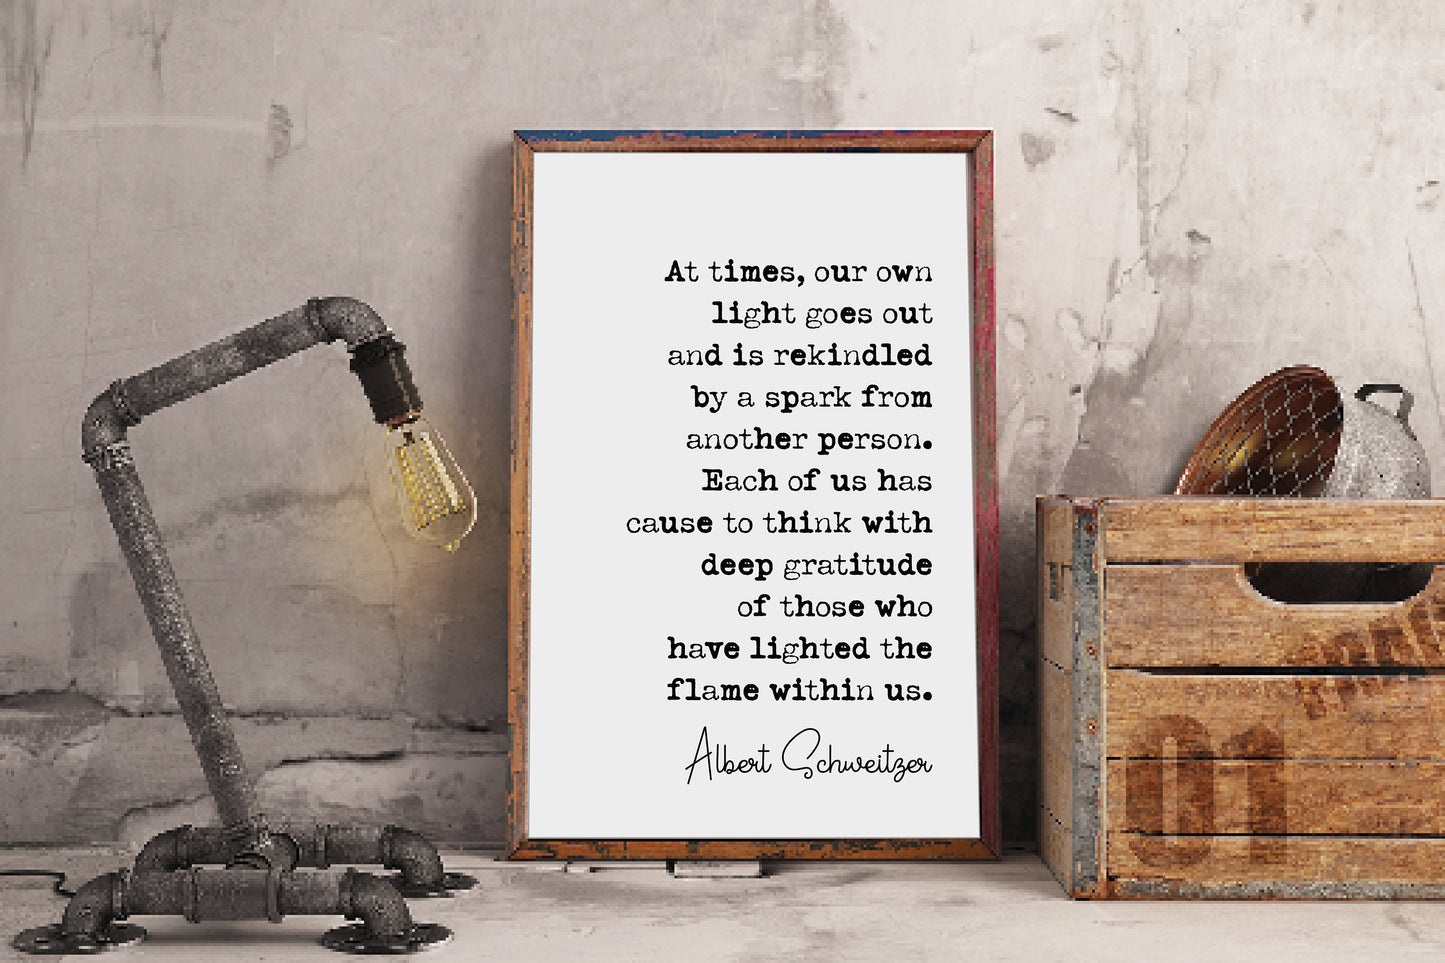 At times, our own
light goes out
and is rekindled
by a spark from
another person.
Each of us has
cause to think with
deep gratitude
of those who
have lighted the
flame within us.
Albert Schweitzer
01